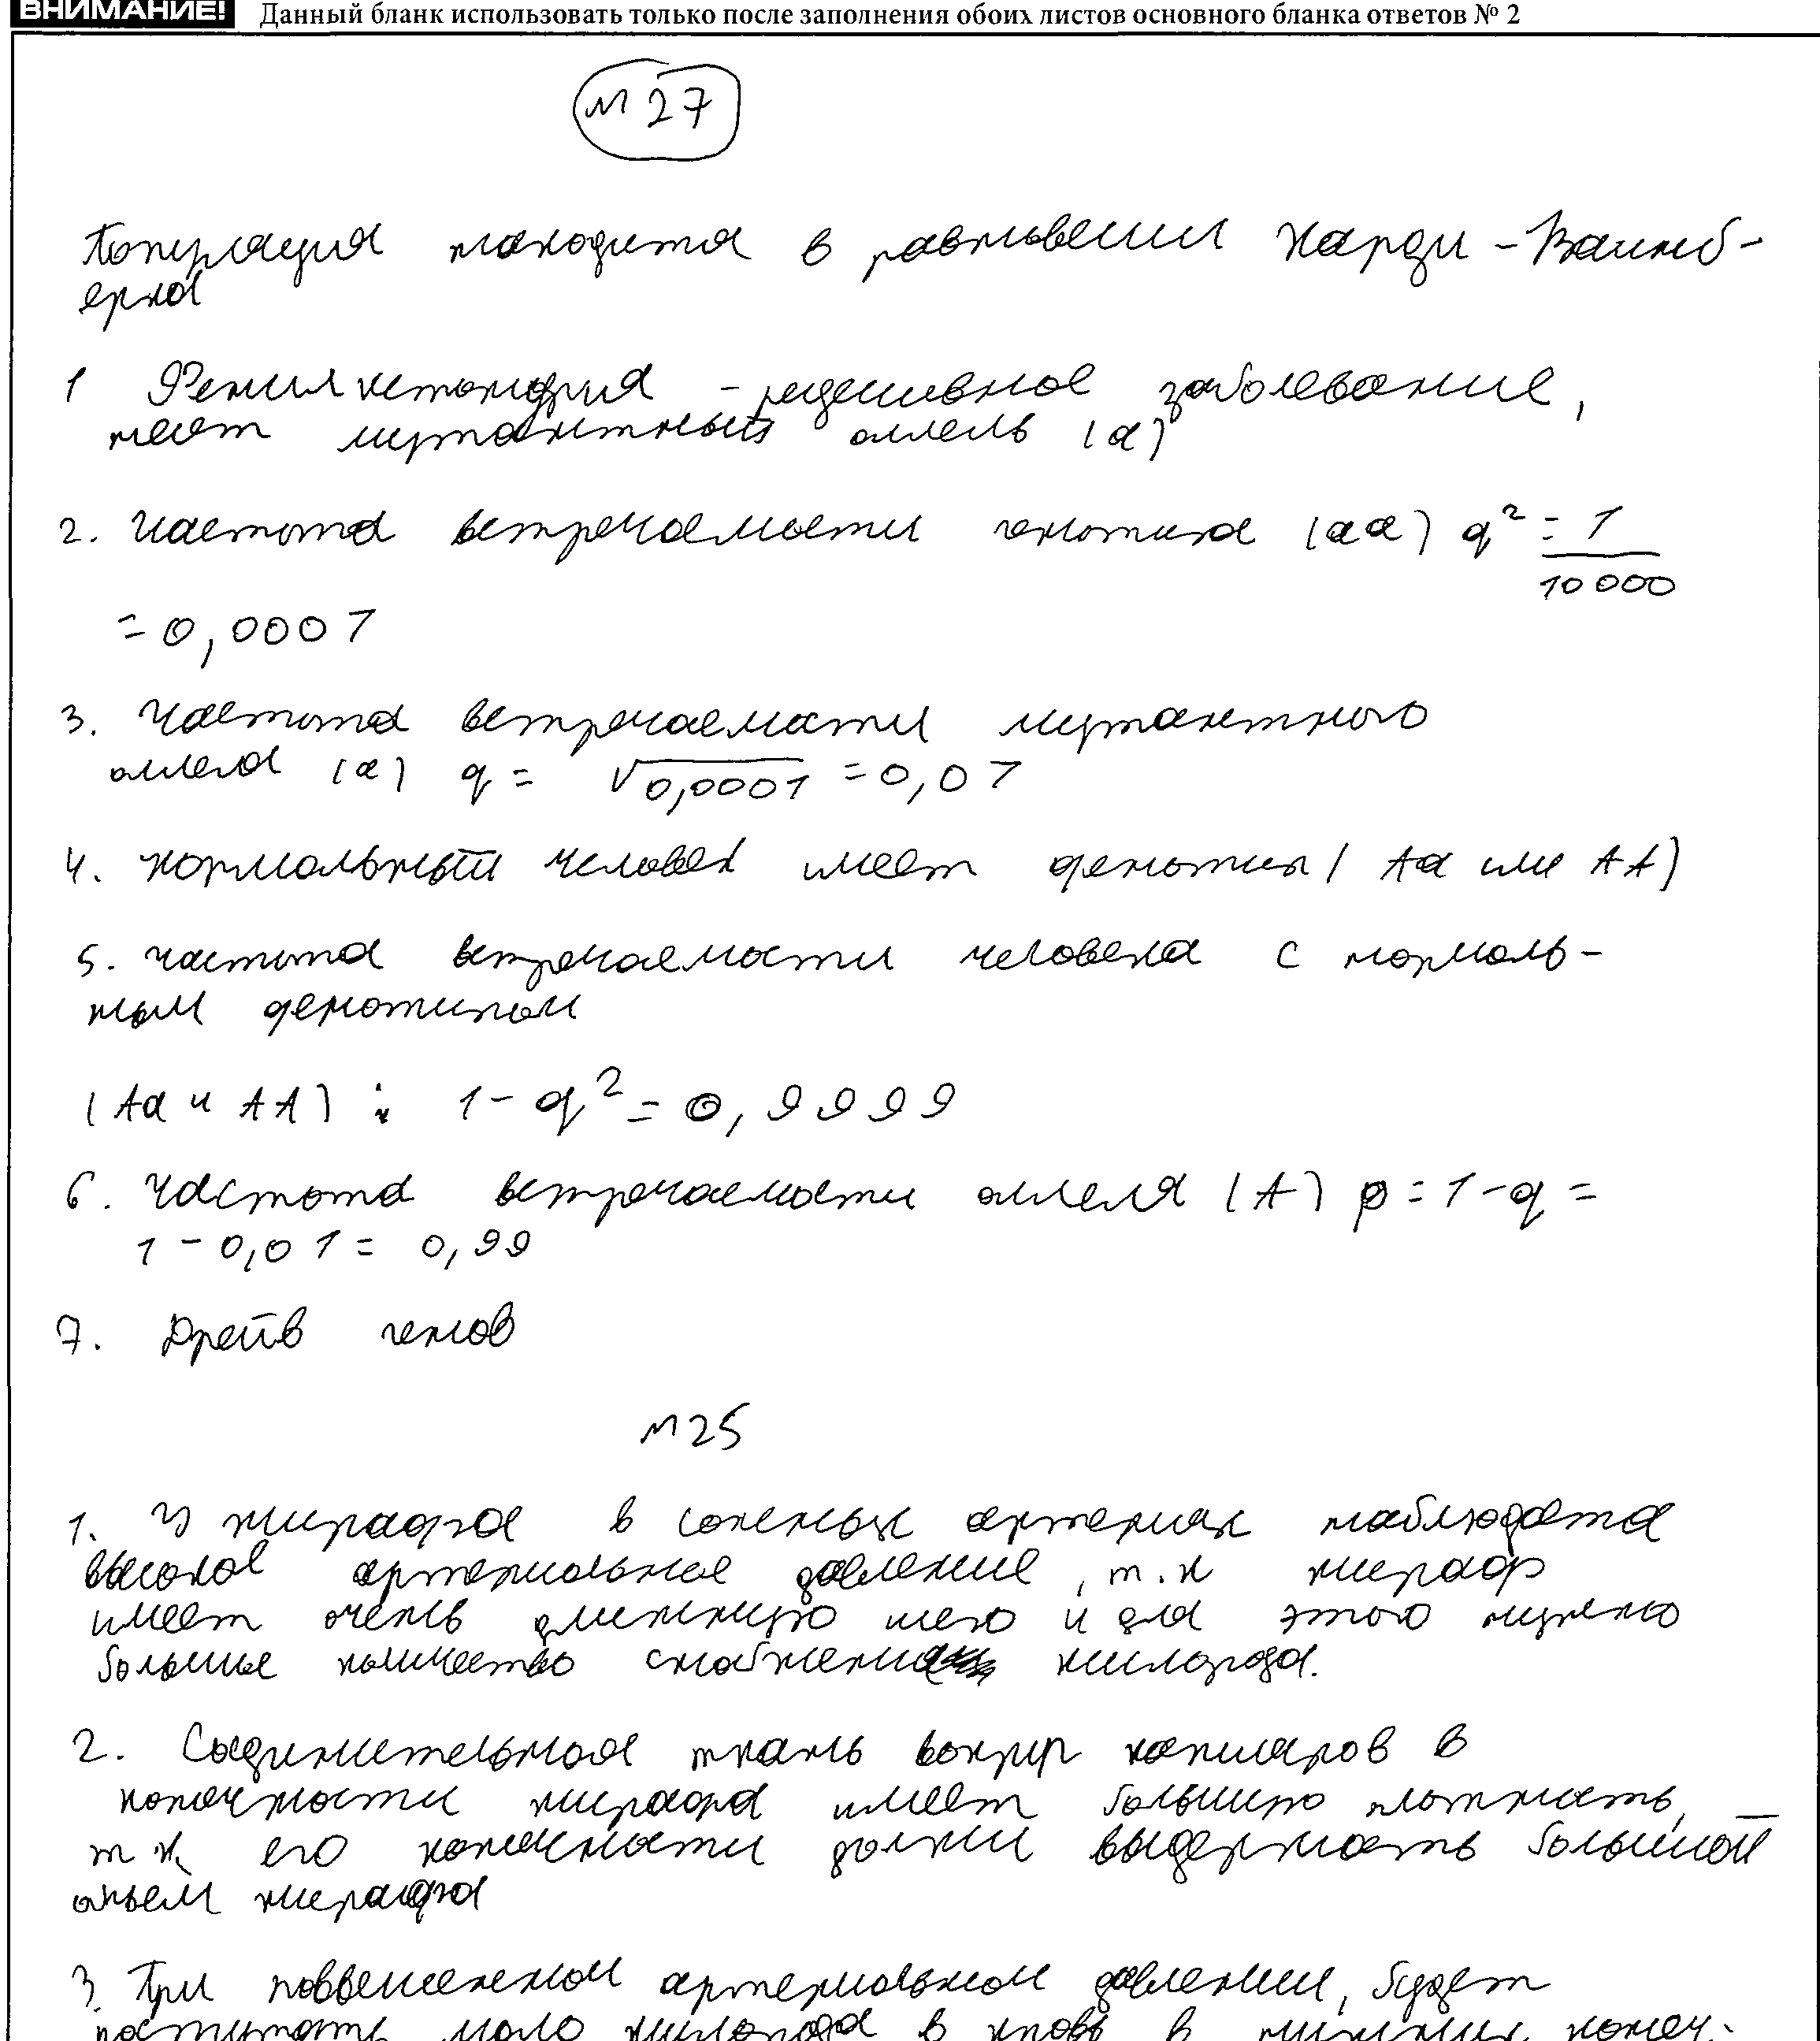 ВНИМАНИЕ! Данный бланк использовать только после заполнения обоих листов основного бланка ответов № 2
№ 27
Популяция находится в равновесии Харди - Ваинб-
ерга
1 Фенилкетонурия - рецессивное заболевание,
несет мутантный аллель (а)
2. Частота встречаемости генотипа (аа) q² = 1/10 000
= 0,0001
3. Частота встречаемости мутантного
аллеля (а) q = √0,0001 = 0,01
4. нормальный человек имеет фенотип ( Аа или АА)
5. частота встречаемости человека с нормаль-
ным фенотипом
(Аа и АА) : 1 - q² = 0,9999
6. Частота встречаемости аллеля (А) p = 1 - q =
1 - 0,01 = 0,99
7. Дрейв генов
№ 25
1. У жирафа в сонених артериях наблюдается
высокое артериальное давление, т.к жираф
имеет очень длинную шею и для этого нужено
большые количество снабжения кислорода.
2. Соединительная ткань вокруг капиляров в
конечности жирафа имеет большую плотность,
т к его конечности должи выдержать большой
жирафа
3. При поввешенном артериальном давлении, будет
поступать мало кислорода в кровь в нижних конеч-